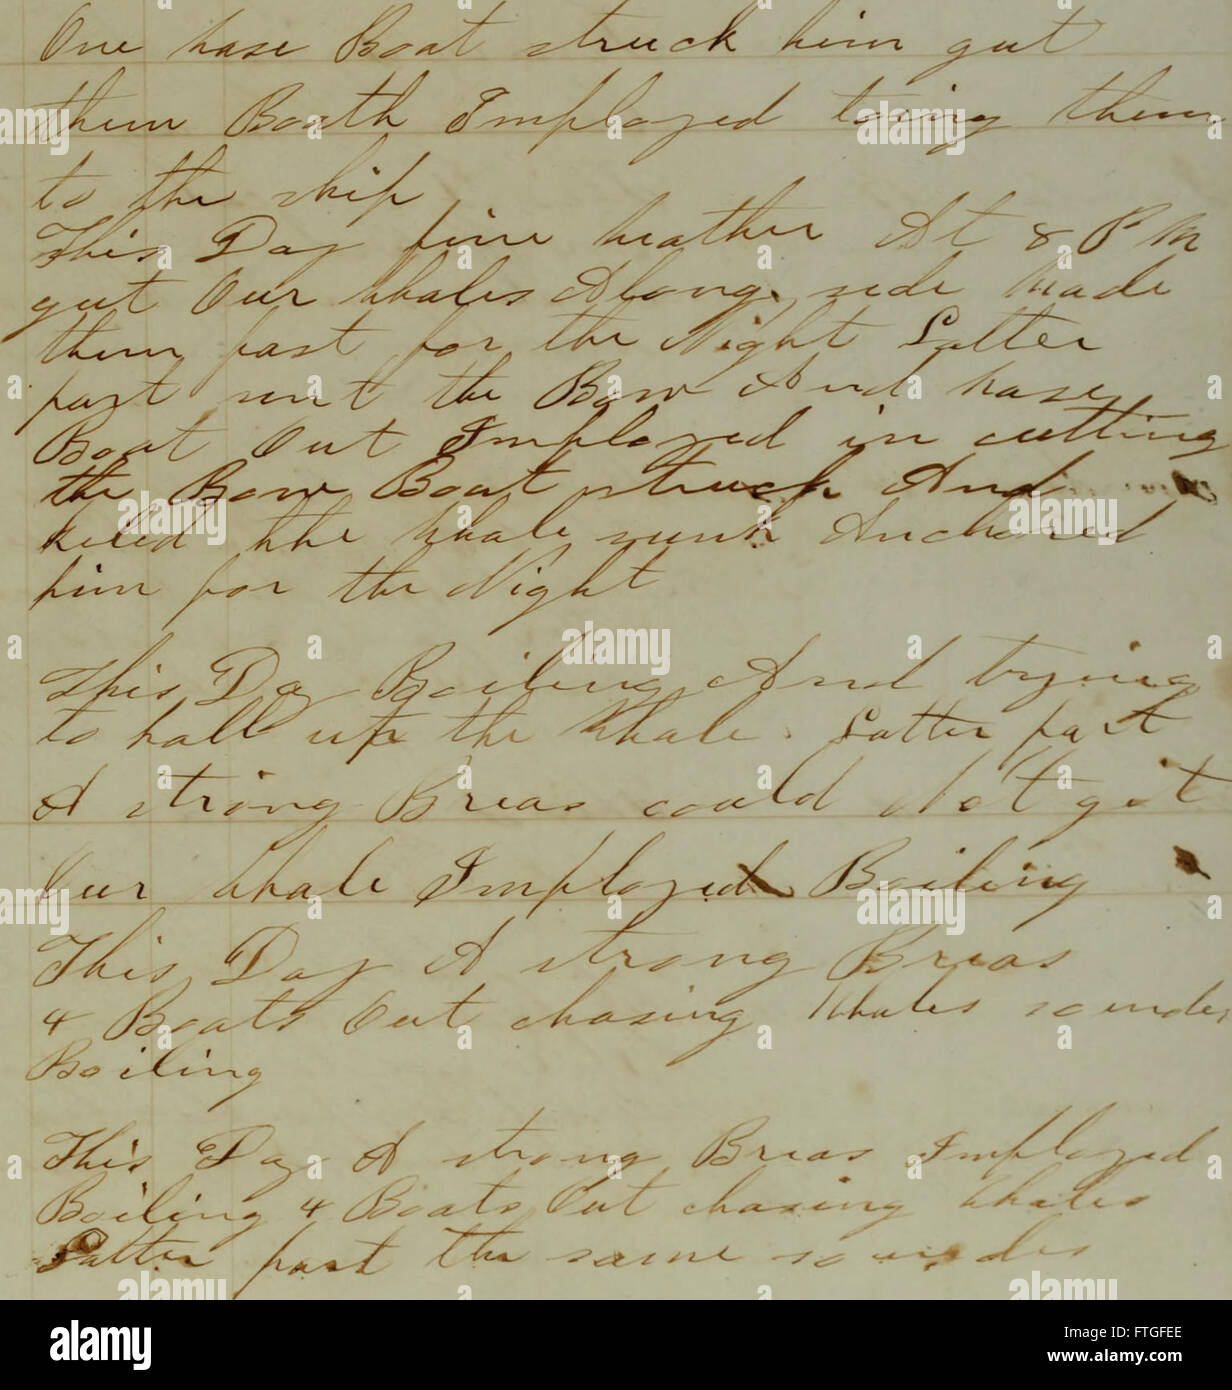 One hase Boat struck him gut
them Booth Imployed toing them
to the ship
This Day fine weather At 8 P M
gut Our Whales Along side made
them fast for the Night Latter
part sent the Bow And hase
Boat Out Imployed in cutting
the Bow Boat struck And
kiled the Whale sunk Anchored
him for the Night
This Day Boiling And trying
to hall up the Whale Latter part
A strong Breas could Not get
Our Whale Imployed Boiling
This Day A strong Breas
4 Boats Out chasing Whales soundes
Boiling
This Day A strong Breas Imployed
Boiling 4 Boats Out chasing Whales
Latter part the same soundes
alamy
Image ID: FTGFEE
www.alamy.com